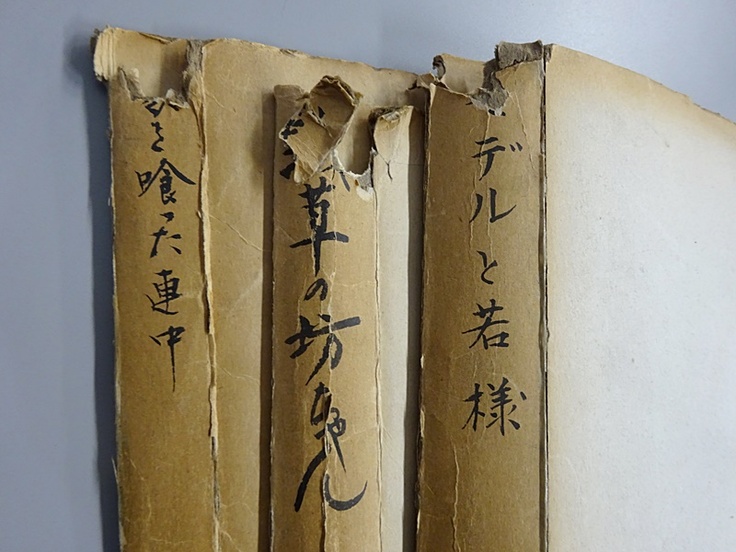 を喰った連中
草の坊ちゃん
デルと若様